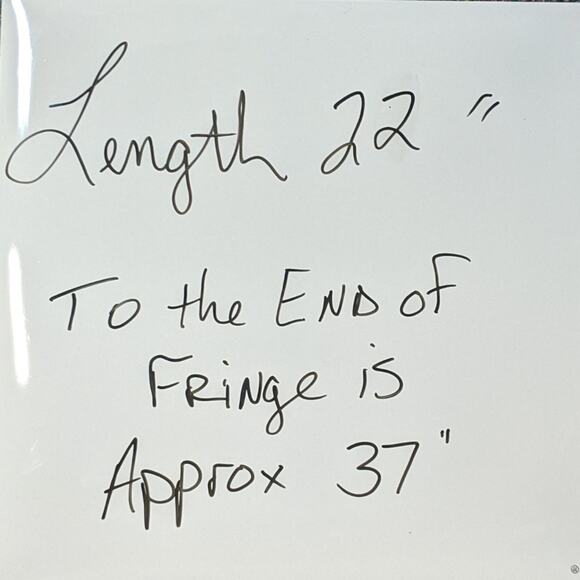 Length 22"
To the END of
FRiNge is
Approx 37"